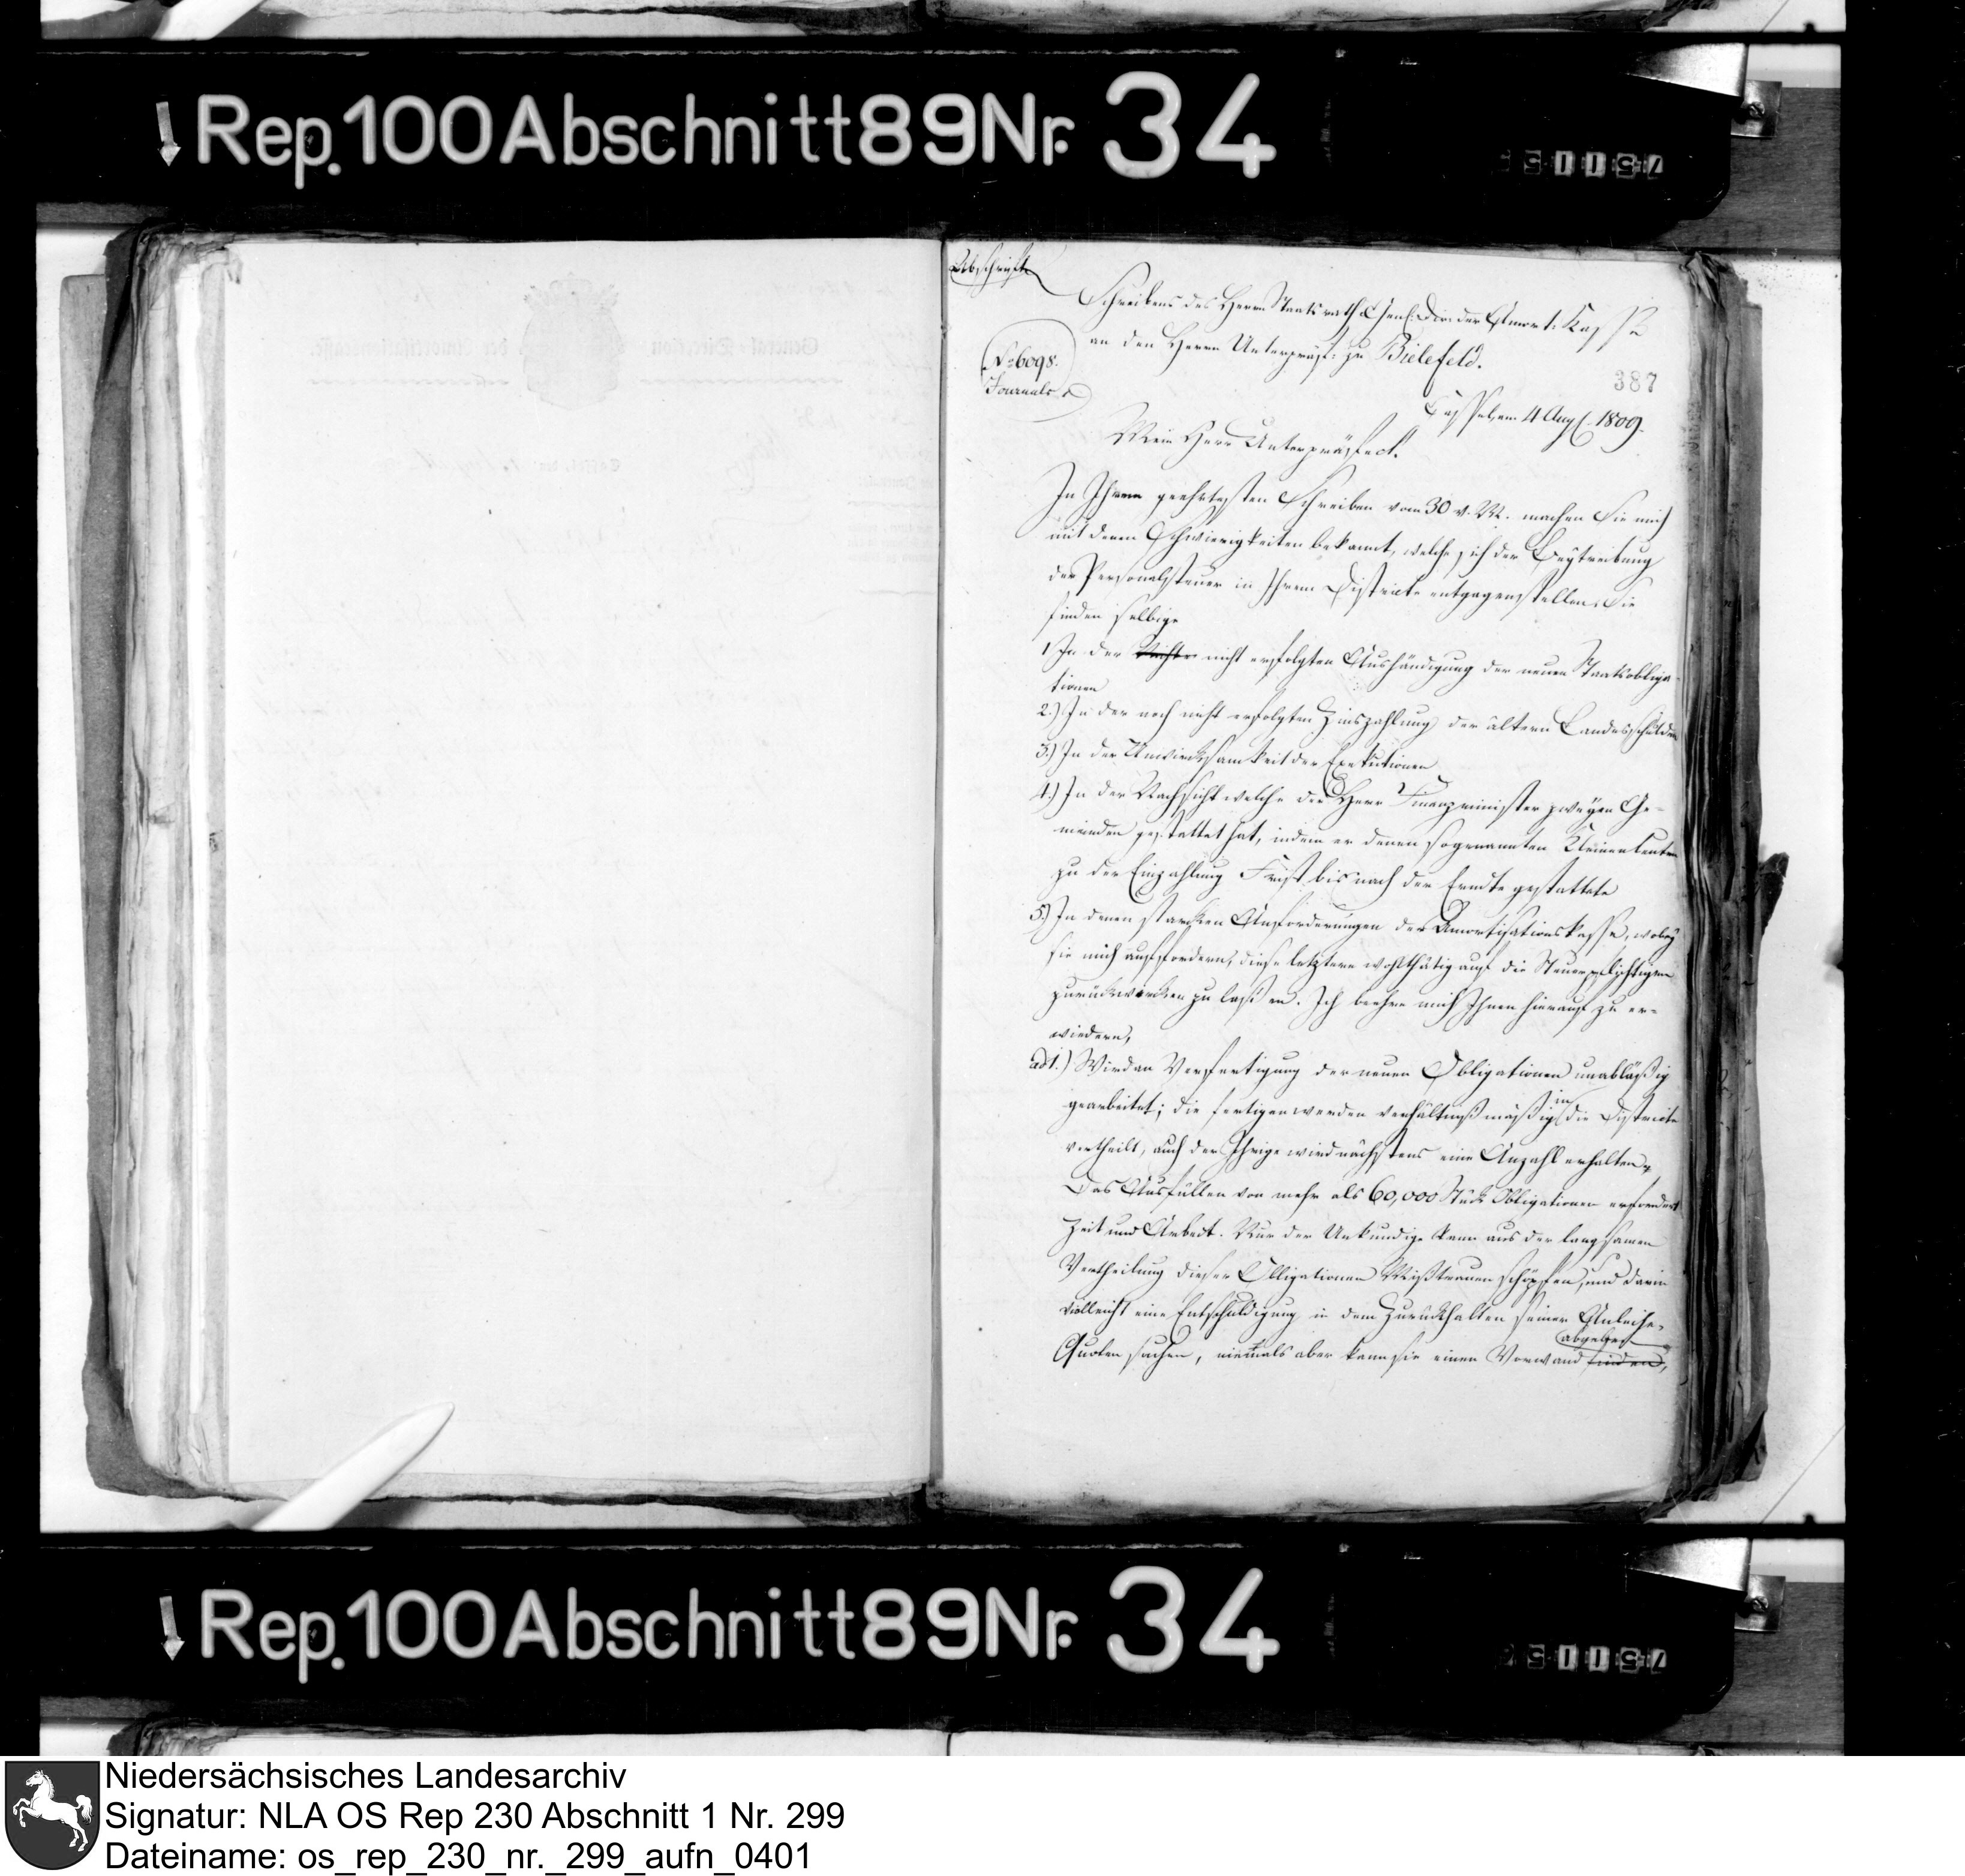 Rep. 100 Abschnitt 89 Nr. 34
Abschrift
Schreibens des Herrn Staatsrath & Genl. Dir. der Amort: Kasse
an den Herrn Unterpräf: zu Bielefeld.
No 6098.
Journals
387
Cassel, am 4 Aug. 1809.
Mein Herr Unterpräfect.
In Ihrem geehrtesten Schreiben vom 30 v. M. machen Sie mich
mit denen Schwierigkeiten bekannt, welche sich der Beytreibung
der Personalsteuer in Ihrem Districte entgegenstellen. Sie
finden selbige
1 In der nicht erfolgten Aushändigung der neuen Staatsobliga-
tionen
2.) In der noch nicht erfolgten Zinszahlung der ältern Landesschulden
3.) In der Unwircksamkeit der Exekutionen
4.) In der Nachsicht welche der Herr Finanzminister zweyen Ge-
meinden gestattet hat, indem er denen sogenannten kleinen Leuten
zu der Einzahlung Frist bis nach der Erndte gestattete
5.) In denen starcken Anforderungen der Amortisationskasse, wobey
sie mich auffordern, diese letztere wohlthätig auf die Steuerpflichtigen
zurückwircken zu lassen. Ich beehre mich Ihnen hierauf zu er-
wiedern,
ad 1.) Wird an Verfertigung der neuen Obligationen unabläßig
gearbeitet; die fertigen werden verhältnißmäßig in die Districte
vertheilt, auch der Ihrige wird nächstens eine Anzahl erhalten,
Das Ausfüllen von mehr als 60,000 Stück Obligationen erfordert
Zeit und Arbeit. Nur der Unkundige kann aus der langsamen
Vertheilung dieser Obligationen Mißtrauen schöpfen, und darin
vielleicht eine Entschuldigung in dem Zurückhalten seiner Anleihe-
abgeben
Quoten suchen, niemals aber kann sie einen Vorwand finden,
Rep. 100 Abschnitt 89 Nr. 34
Niedersächsisches Landesarchiv
Signatur: NLA OS Rep 230 Abschnitt 1 Nr. 299
Dateiname: os_rep_230_nr._299_aufn_0401